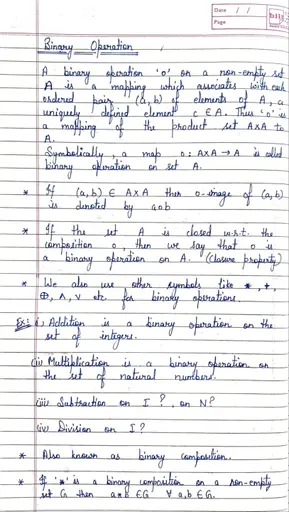 Date / /
Page
Binary Operation
A binary operation 'o' on a non-empty set
A is a mapping which associates with each
ordered pair (a, b) of elements of A, a
uniquely defined element c ∈ A. Thus 'o' is
a mapping of the product set A×A to
A.
Symbolically, a map o: A×A → A is called
binary operation on set A.
* If (a, b) ∈ A×A then o-image of (a, b)
is denoted by aob
* If the set A is closed w.r.t. the
composition o, then we say that o is
a binary operation on A. (closure property)
* We also use other symbols like *, +,
⊕, ∧, ∨ etc for binary operations.
Ex: (i) Addition is a binary operation on the
set of integers.
(ii) Multiplication is a binary operation on
the set of natural numbers.
(iii) Subtraction on I ?, on N?
(iv) Division on I ?
* Also known as binary composition.
* If '*' is a binary composition on a non-empty
set G then a*b ∈ G ∀ a,b ∈ G.